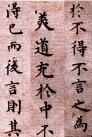 於不得不言之為
義道充於中不
得已而後言則其